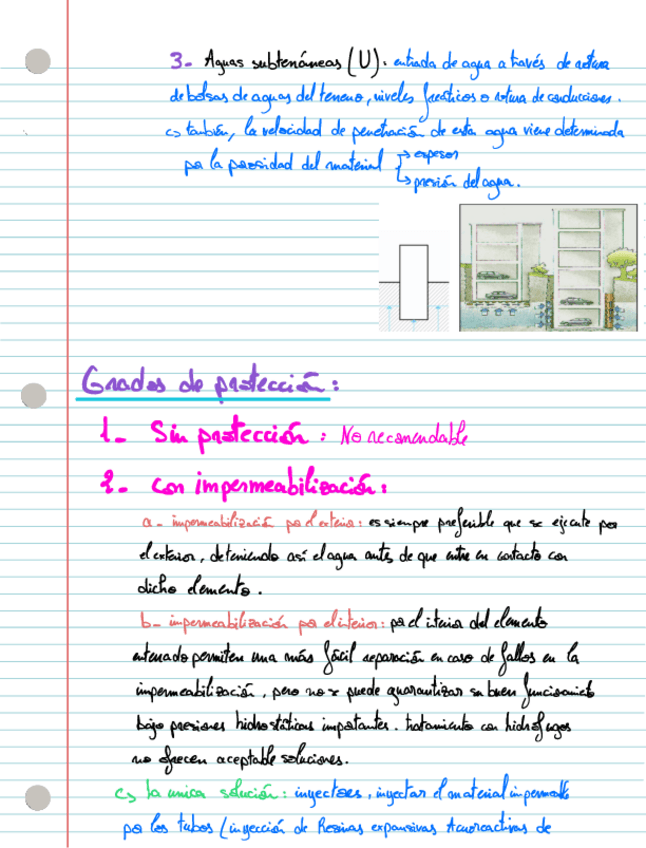 3- Aguas subterráneas (U). entrada de agua a través de rotura
de bolsas de aguas del terreno, niveles freáticos o rotura de conducciones.
↪ también, la velocidad de penetración de esta agua viene determinada
por la porosidad del material ↱ espesor
↳ presión del agua.
Grados de protección:
1- Sin protección: No recomendable
2- con impermeabilización:
a- impermeabilización por el exterior: es siempre preferible que se ejecute por
el exterior, deteniendo así el agua antes de que entre en contacto con
dicho elemento.
b- impermeabilización por el interior: por el interior del elemento
enterrado permiten una más fácil reparación en caso de fallos en la
impermeabilización, pero no se puede guarantizar su buen funcionamiento
bajo presiones hidrostáticas importantes. tratamiento con hidrófugos
no ofrecen aceptable soluciones.
↪ la unica solución: inyectores, inyectar el material impermeable
por los tubos (inyección de Resinas expansivas Acuoreactivas de